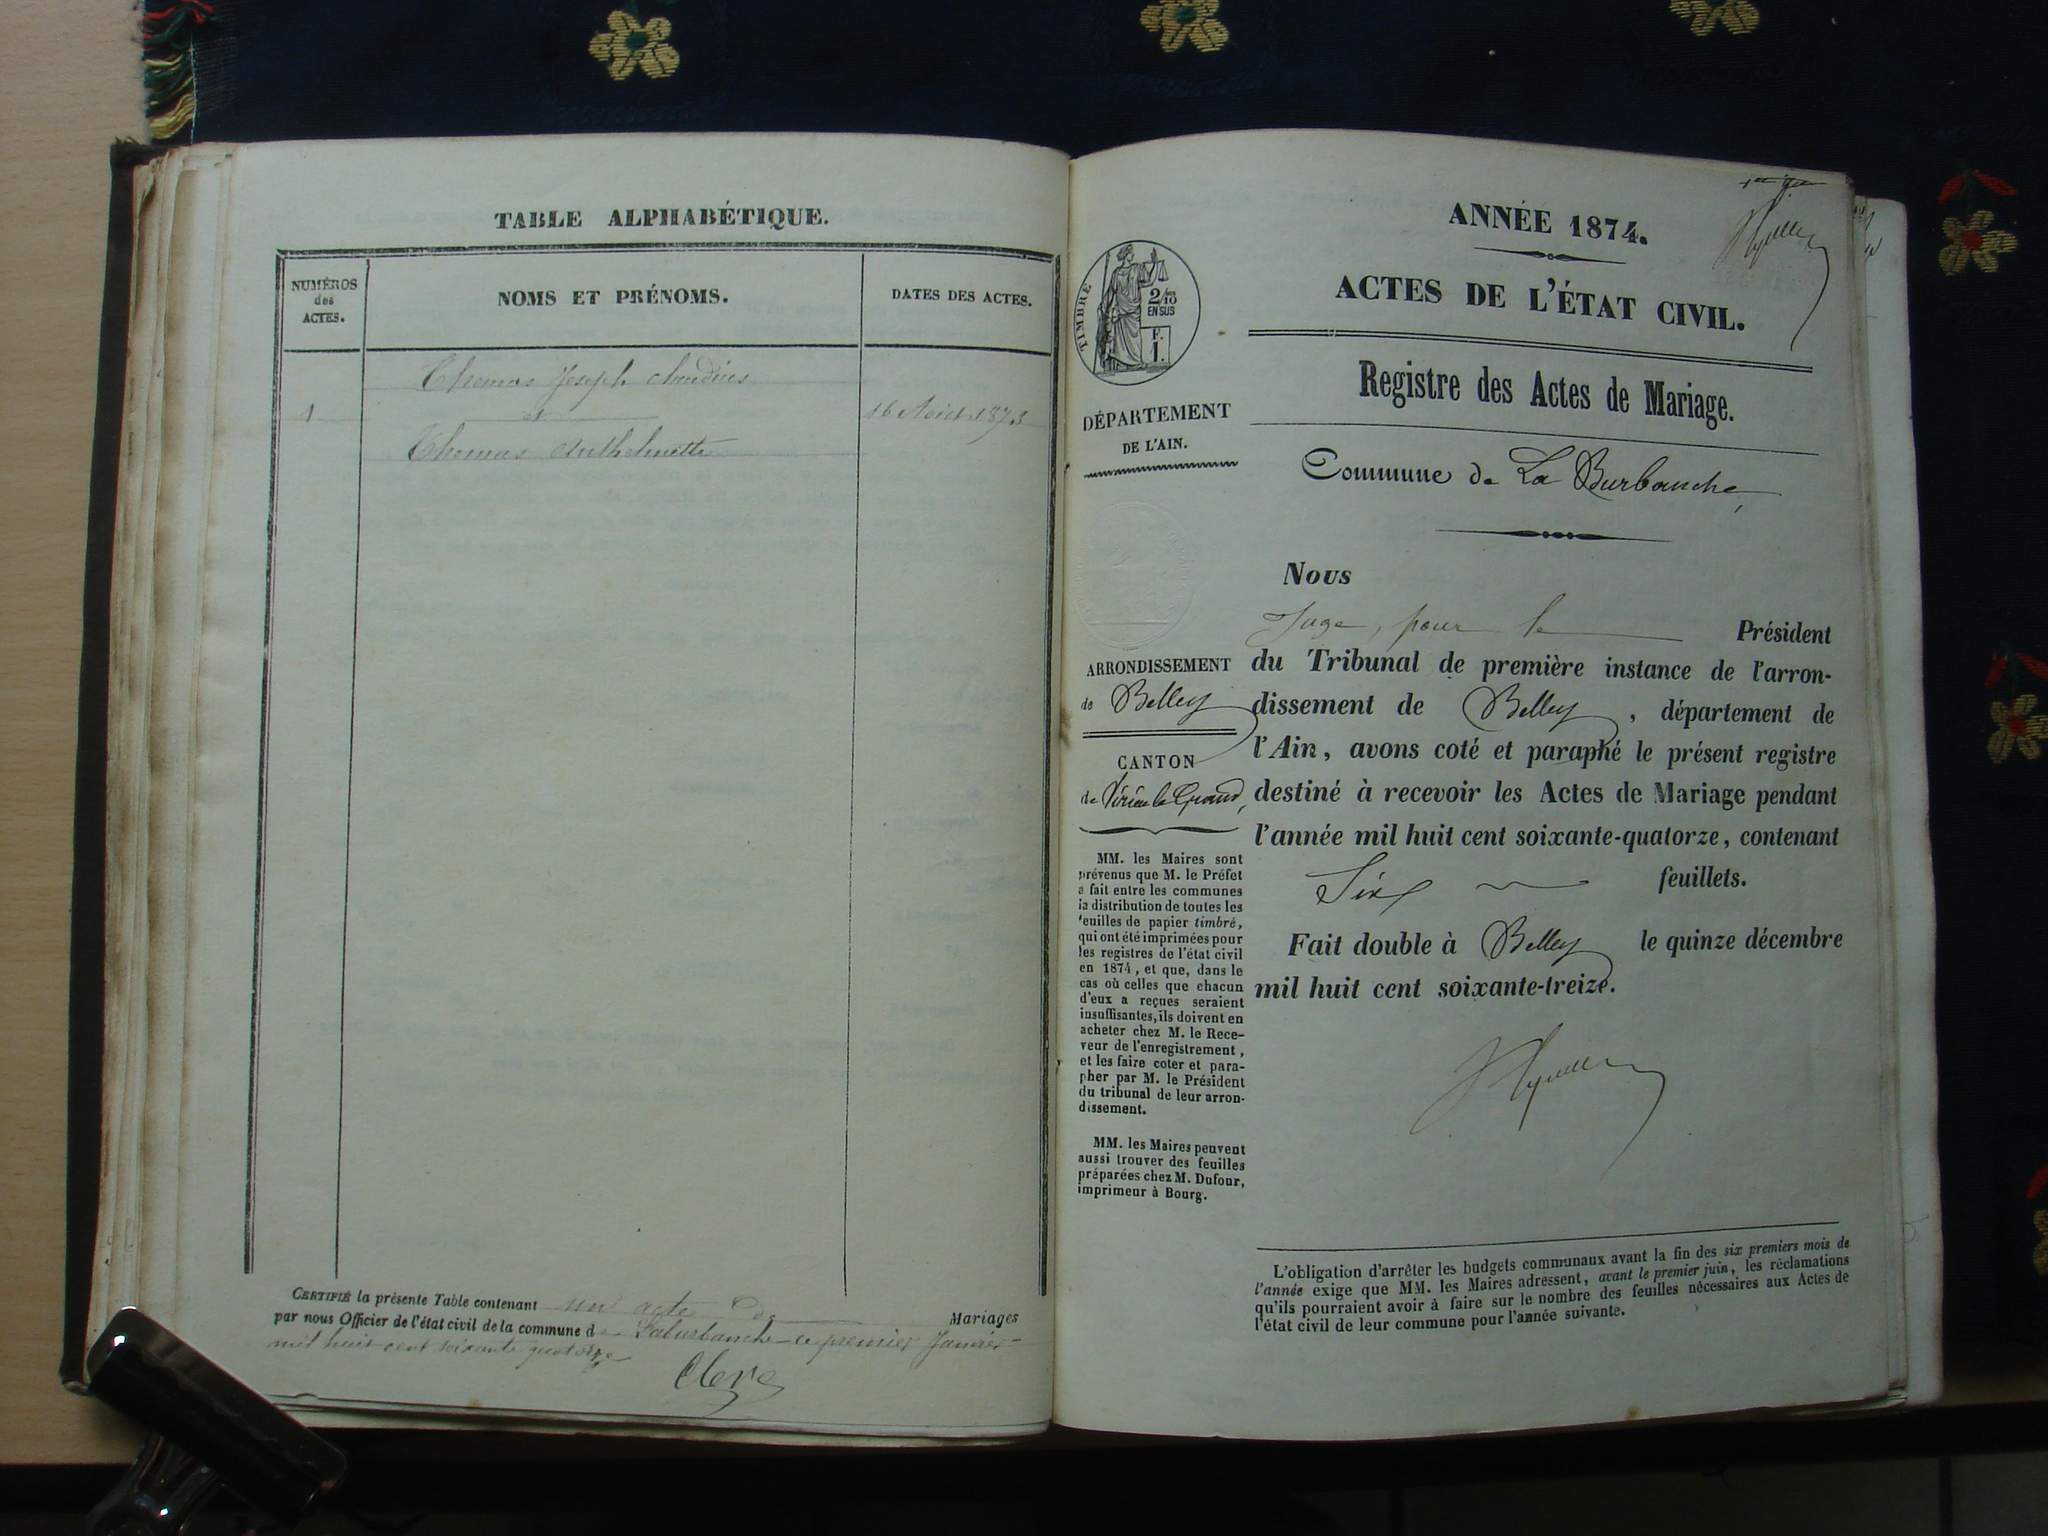 TABLE ALPHABÉTIQUE.
NUMÉROS
des
ACTES.
NOMS ET PRÉNOMS.
DATES DES ACTES.
Thomas Joseph Claudius
1
et
16 Août 1873
Thomas Anthelmette
CERTIFIÉ la présente Table contenant un acte de Mariages
par nous Officier de l'état civil de la commune de Laburbanche ce premier Janvier
mil huit cent soixante quatorze
Clerc
ANNÉE 1874.
ACTES DE L'ÉTAT CIVIL.
Registre des Actes de Mariage.
Commune de La Burbanche,
TIMBRE
2/10
EN SUS
F.
1.
DÉPARTEMENT
DE L'AIN.
ARRONDISSEMENT
de Belley
CANTON
de Virieu le Grand,
MM. les Maires sont
prévenus que M. le Préfet
a fait entre les communes
la distribution de toutes les
feuilles de papier timbré,
qui ont été imprimées pour
les registres de l'état civil
en 1874, et que, dans le
cas où celles que chacun
d'eux a reçues seraient
insuffisantes, ils doivent en
acheter chez M. le Rece-
veur de l'enregistrement,
et les faire coter et para-
pher par M. le Président
du tribunal de leur arron-
dissement.
MM. les Maires peuvent
aussi trouver des feuilles
préparées chez M. Dufour,
imprimeur à Bourg.
Nous
Juge, pour le Président
du Tribunal de première instance de l'arron-
dissement de Belley, département de
l'Ain, avons coté et paraphé le présent registre
destiné à recevoir les Actes de Mariage pendant
l'année mil huit cent soixante-quatorze, contenant
Six feuillets.
Fait double à Belley le quinze décembre
mil huit cent soixante-treize.
L'obligation d'arrêter les budgets communaux avant la fin des six premiers mois de
l'année exige que MM. les Maires adressent, avant le premier juin, les réclamations
qu'ils pourraient avoir à faire sur le nombre des feuilles nécessaires aux Actes de
l'état civil de leur commune pour l'année suivante.